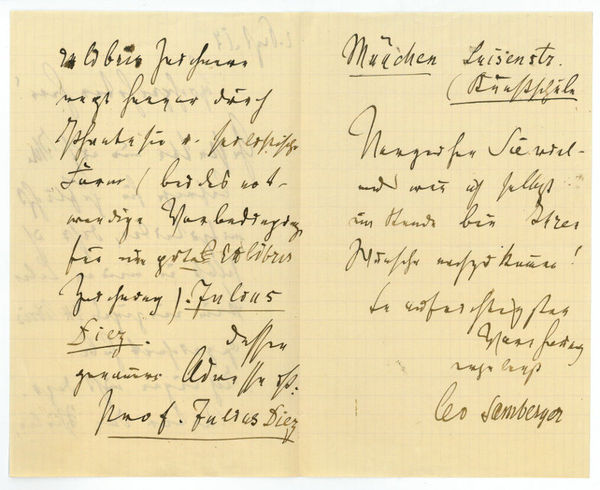 Exlibris Zeichnern
durch
Phantasie u.
Form (beides not-
wendige Vorbedingung
für ein gutes Exlibris
Zeichnung). Julius
Diez. dessen
genaue Adresse ist:
Prof. Julius Diez
München Luisenstr.
(Kunstschule
Verzeihen Sie
wenn ich selbst
im Stande bin Ihren
Wunsche nachzukommen!
In aufrichtigster
Verehrung
ergebenst
Leo Samberger